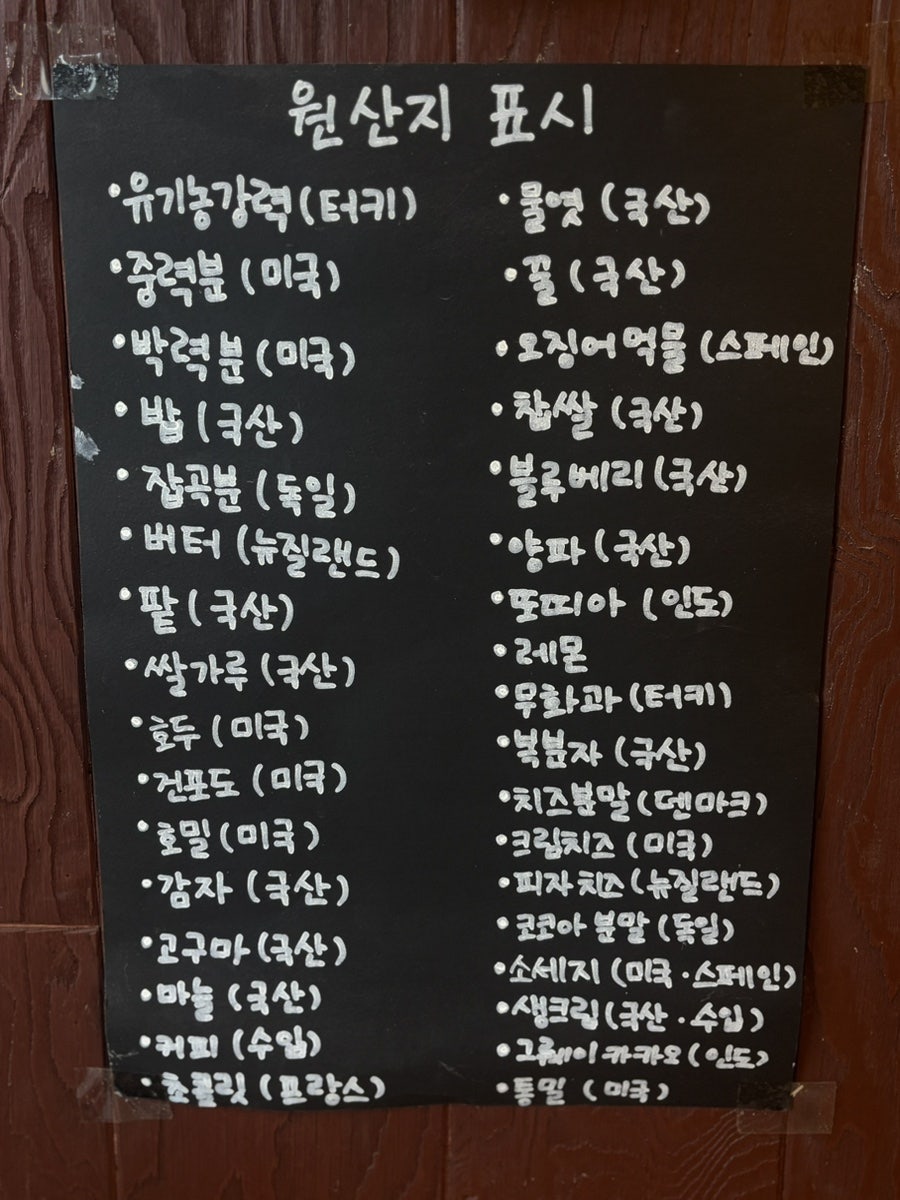 원산지 표시
·유기농강력(터키)
·중력분(미국)
·박력분(미국)
·밥(국산)
·잡곡분(독일)
·버터(뉴질랜드)
·팥(국산)
·쌀가루(국산)
·호두(미국)
·건포도(미국)
·호밀(미국)
·감자(국산)
·고구마(국산)
·마늘(국산)
·커피(수입)
·초콜릿(프랑스)
·물엿(국산)
·꿀(국산)
·오징어먹물(스페인)
·찹쌀(국산)
·블루베리(국산)
·양파(국산)
·또띠아(인도)
·레몬
·무화과(터키)
·복분자(국산)
·치즈분말(덴마크)
·크림치즈(미국)
·피자치즈(뉴질랜드)
·코코아 분말(독일)
·소세지(미국·스페인)
·생크림(국산·수입)
·카카오(인도)
·통밀(미국)